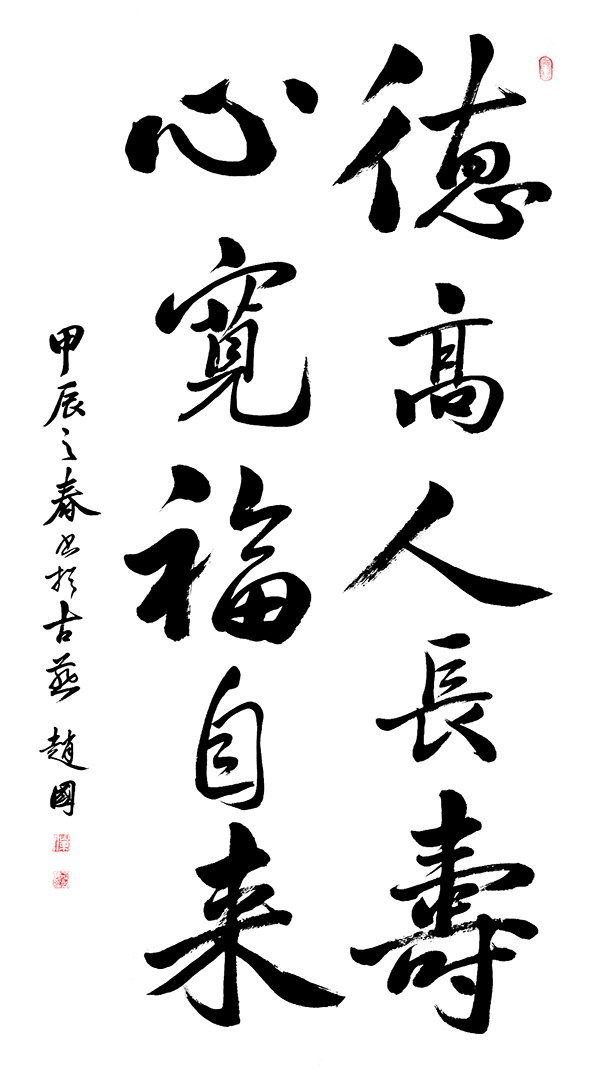 德高人長壽
心寬福自来
甲辰之春书於古燕 趙國